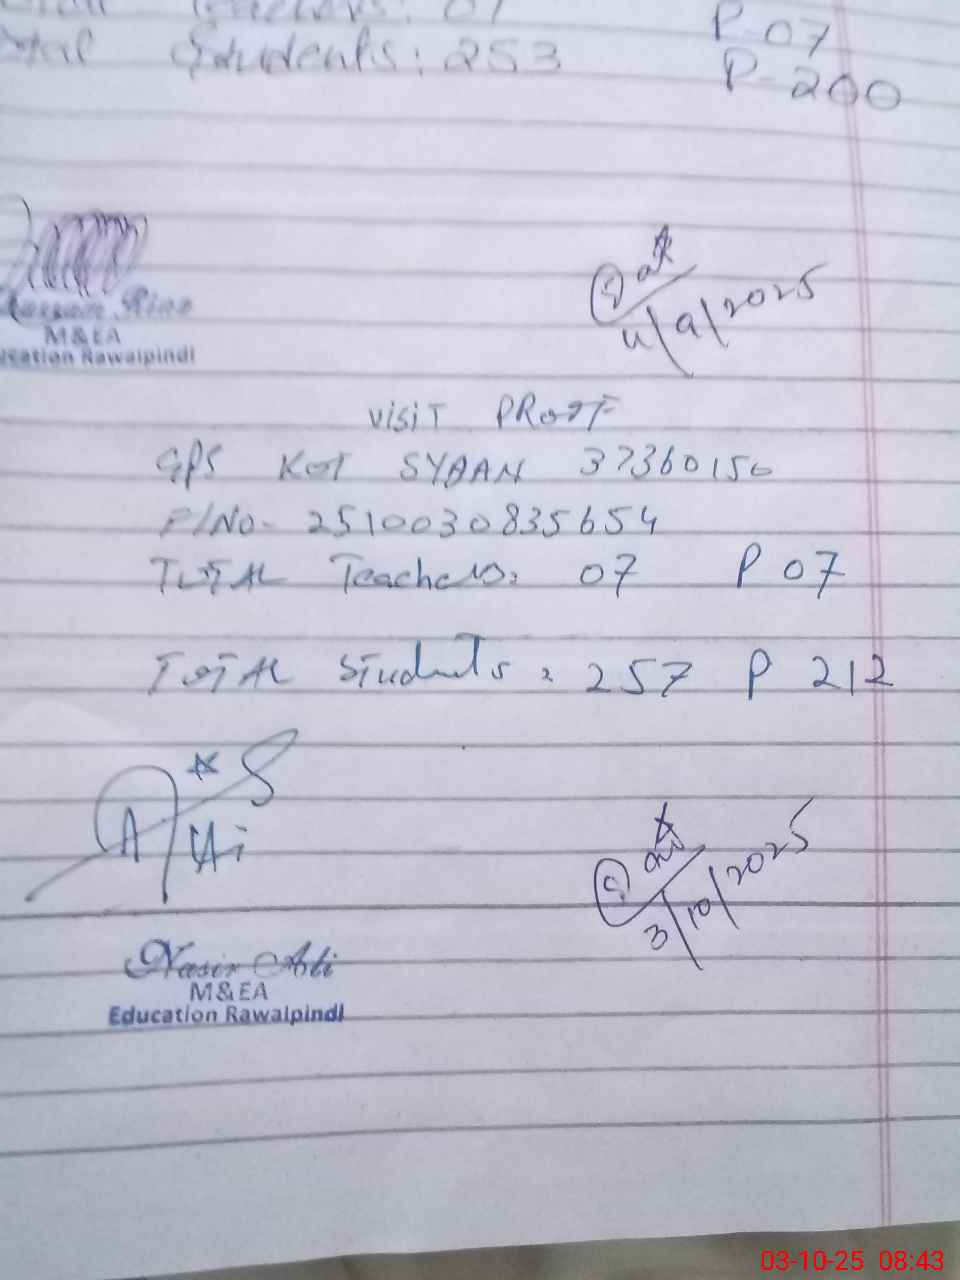 Teachers: 07
P-07
Students: 253
P-200
Rawalpindi
M&EA
Education Rawalpindi
4/9/2025
VISIT PROOF
GPS KOT SYDAN 37360150
F/No- 2510030835654
TOTAL Teachers: 07 P 07
TOTAL Students: 257 P 212
3/10/2025
Nasir Ali
M&EA
Education Rawalpindi
03-10-25 08:43